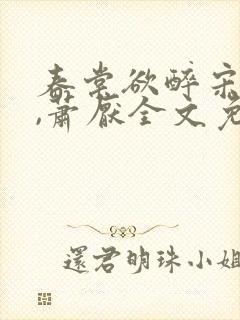 春棠欲醉宋
,萧厌全文免
還君明珠小姐